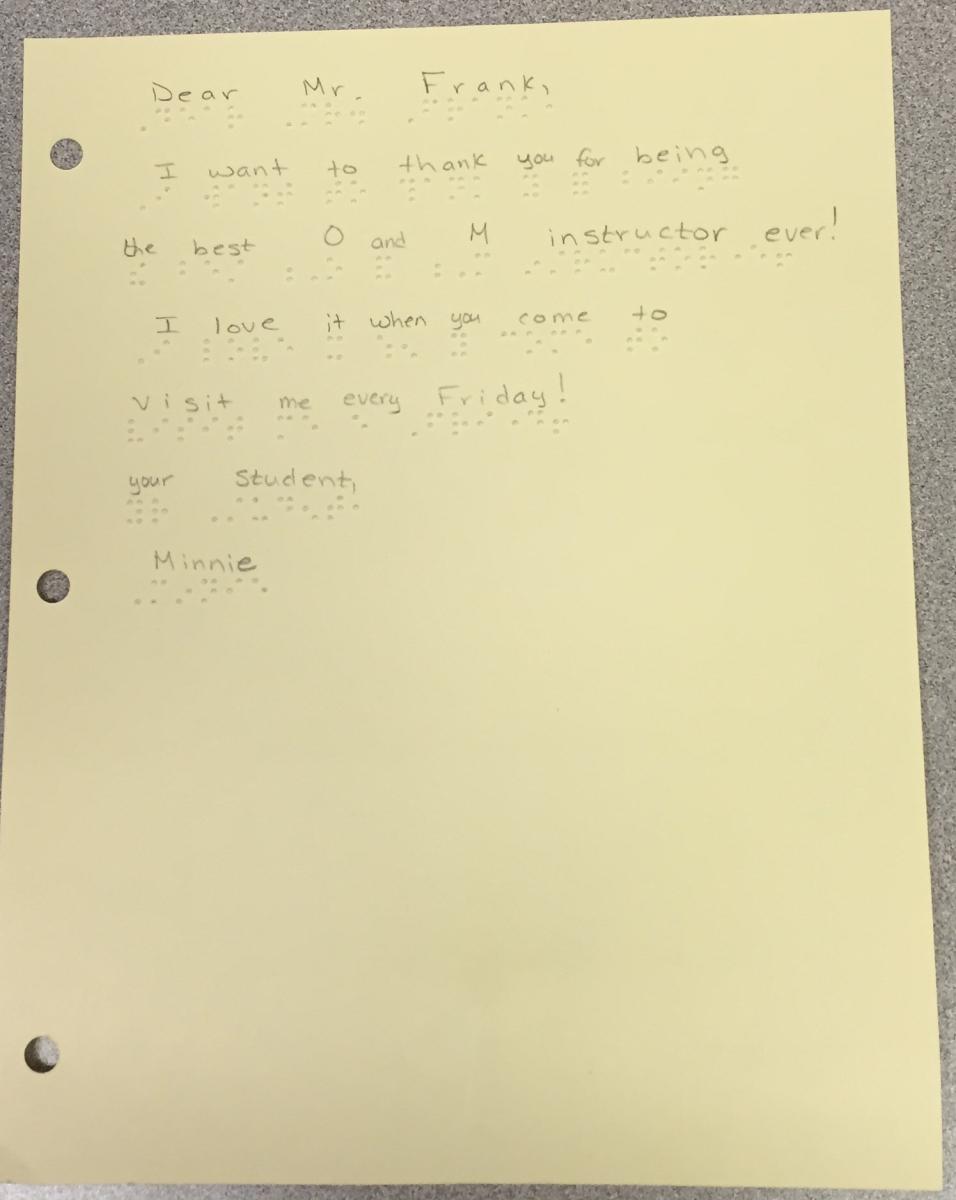 Dear Mr. Frank,
I want to thank you for being
the best O and M instructor ever!
I love it when you come to
visit me every Friday!
your Student,
Minnie